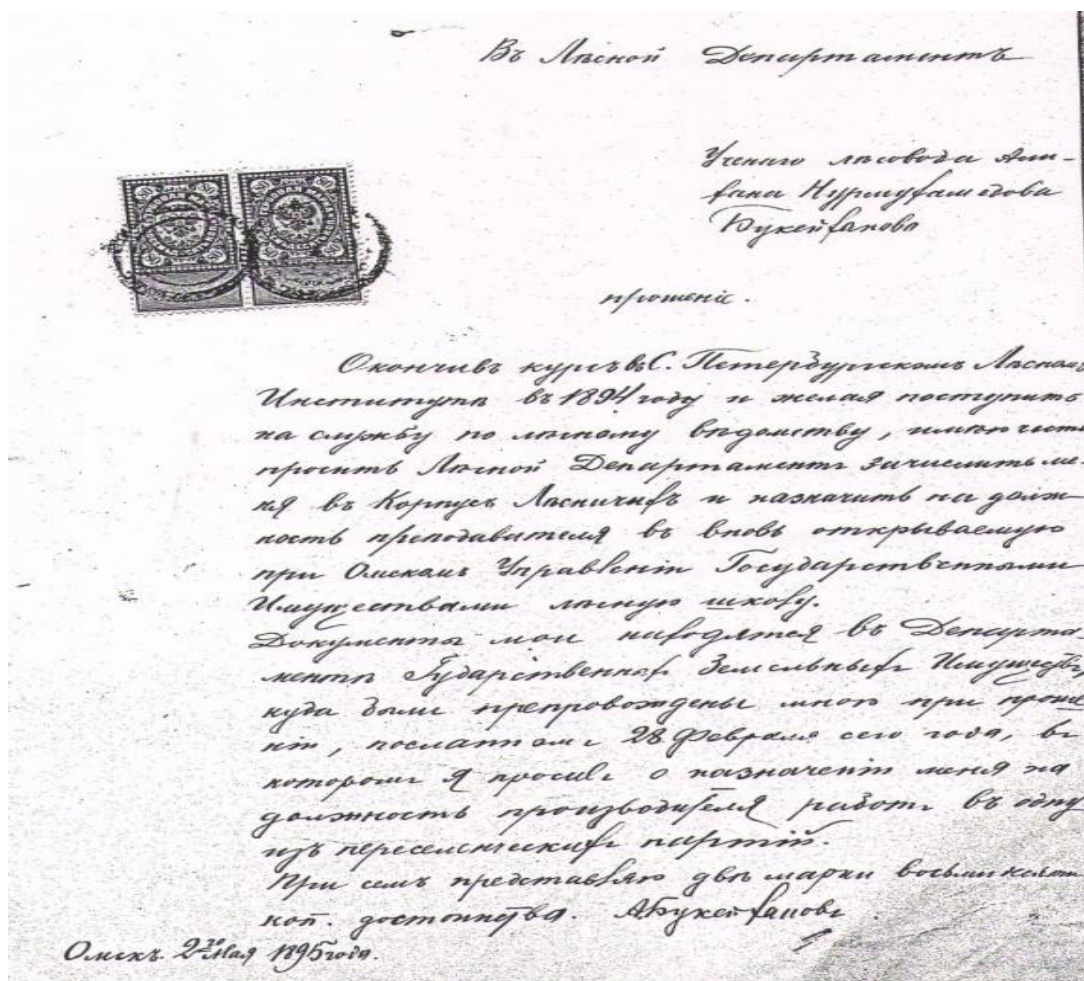 Въ Лѣсной Департаментъ
Ученаго лѣсовода Али-
хана Нурмухамедова
Букейханова
прошеніе.
Окончивъ курсъ въ С. Петербургскомъ Лѣсномъ
Институтѣ въ 1894 году и желая поступить
на службу по лѣсному вѣдомству, имѣю честь
просить Лѣсной Департаментъ зачислить ме-
ня въ Корпусъ Лѣсничихъ и назначить на долж-
ность преподавателя въ вновь открываемую
при Омскомъ Управленіи Государственными
Имуществами лѣсную школу.
Документы мои находятся въ Департа-
ментѣ Гударственныхъ Земельныхъ Имуществъ,
куда были препровождены мною при проше
ніи, посланномъ 28 Февраля сего года, въ
которомъ я просилъ о назначеніи меня на
должность производителя работъ въ одну
изъ переселенческихъ партій.
При семъ представляю двѣ марки восьмидесяти
коп. достоинства. АБукейхановъ
Омскъ. 2го Мая 1895 года.